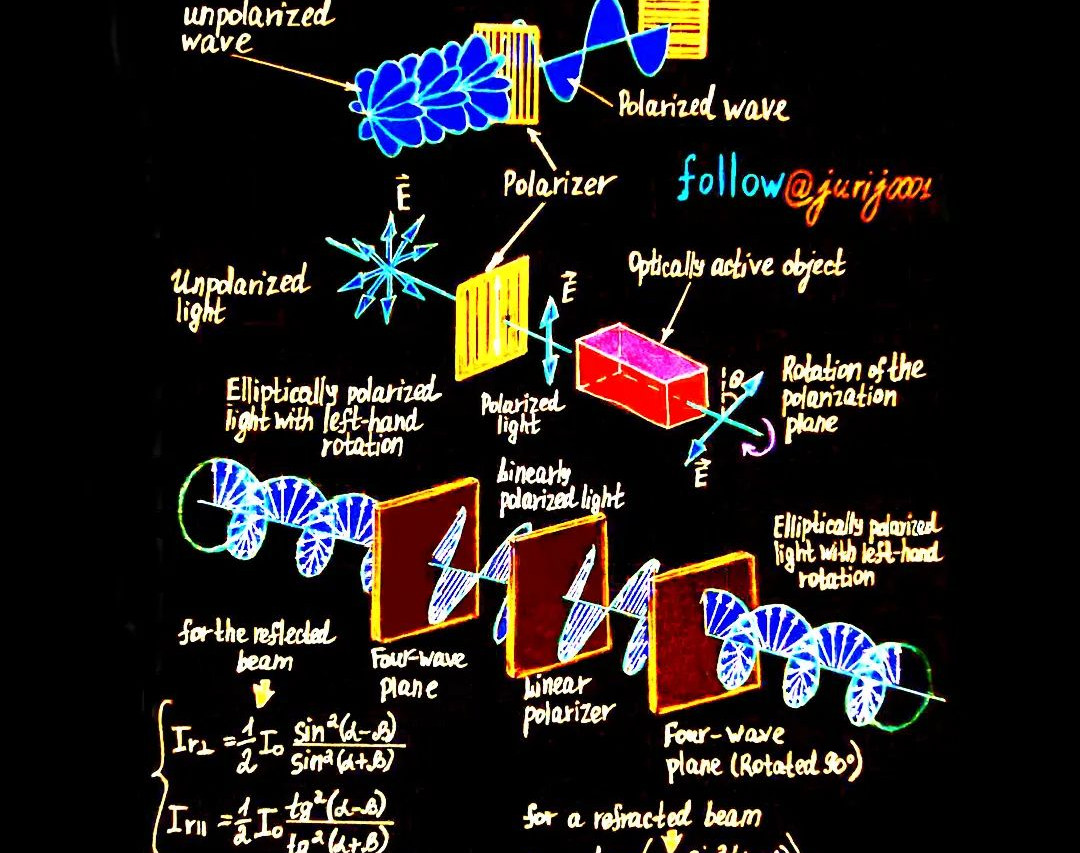 unpolarized
wave
Polarized wave
Polarizer
follow@jurij0001
E
Unpolarized
light
Optically active object
E
Rotation of the
polarization
plane
θ
E
Elliptically polarized
light with left-hand
rotation
Polarized
light
Linearly
polarized light
Elliptically polarized
light with left-hand
rotation
for the reflected
beam
Four-wave
plane
Linear
polarizer
Four-wave
plane (Rotated 90°)
Ir⊥ = 1/2 I₀ sin²(α-β)/sin²(α+β)
Ir∥ = 1/2 I₀ tg²(α-β)/tg²(α+β)
for a refracted beam